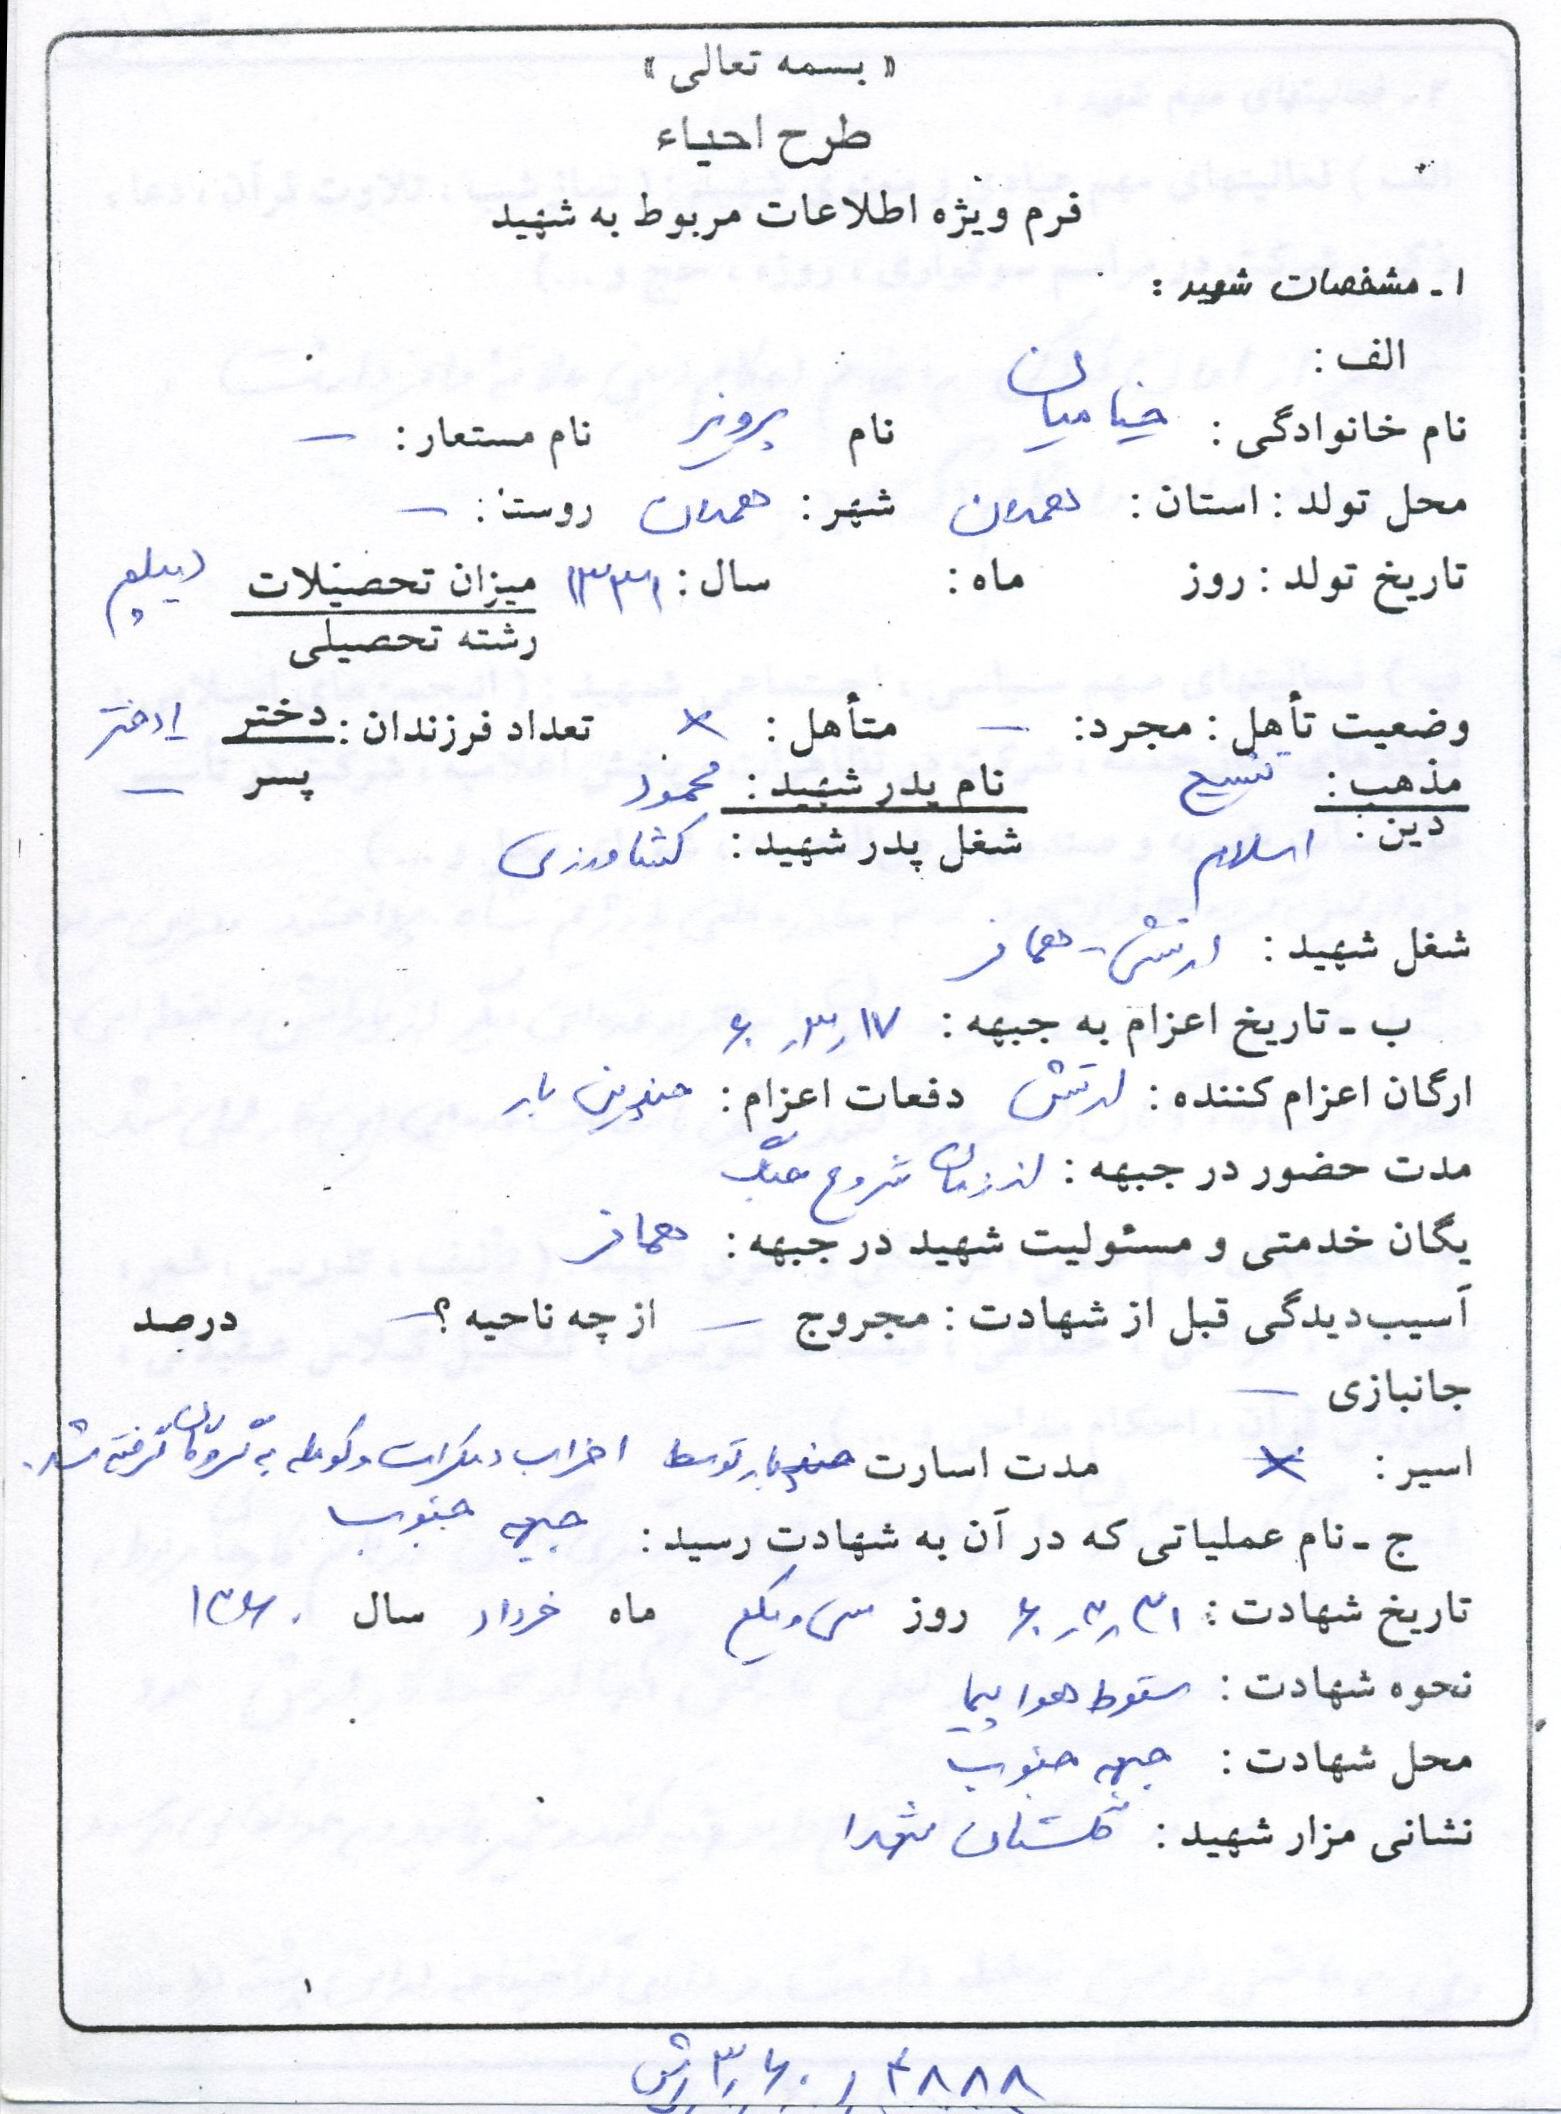 « بسمه تعالی »
طرح احیاء
فرم ویژه اطلاعات مربوط به شهید
۱ـ مشخصات شهید :
الف :
نام خانوادگی : خیامیان نام پرویز نام مستعار : —
محل تولد : استان : همدان شهر : همدان روستا : —
تاریخ تولد : روز ماه : سال : ۱۳۳۱ میزان تحصیلات دیپلم
رشته تحصیلی
وضعیت تأهل : مجرد : — متأهل : × تعداد فرزندان : دختر ۱دختر
مذهب : تشیع نام پدر شهید : محمود پسر —
دین : اسلام شغل پدر شهید : کشاورزی
شغل شهید : ارتش - همافر
ب ـ تاریخ اعزام به جبهه : ۶۰٫۳٫۱۷
ارگان اعزام کننده : ارتش دفعات اعزام : چندین بار
مدت حضور در جبهه : از زمان شروع جنگ
یگان خدمتی و مسئولیت شهید در جبهه : همافر
آسیب‌دیدگی قبل از شهادت : مجروح — از چه ناحیه ؟ — درصد
جانبازی —
اسیر : × مدت اسارت چندبار توسط احزاب دمکرات و کومله به گروگان گرفته شد.
ج ـ نام عملیاتی که در آن به شهادت رسید : جبهه جنوب
تاریخ شهادت : ۶۰٫۳٫۳۱ روز سی و یکم ماه خرداد سال ۱۳۶۰
نحوه شهادت : سقوط هواپیما
محل شهادت : جبهه جنوب
نشانی مزار شهید : گلستان شهدا
۱